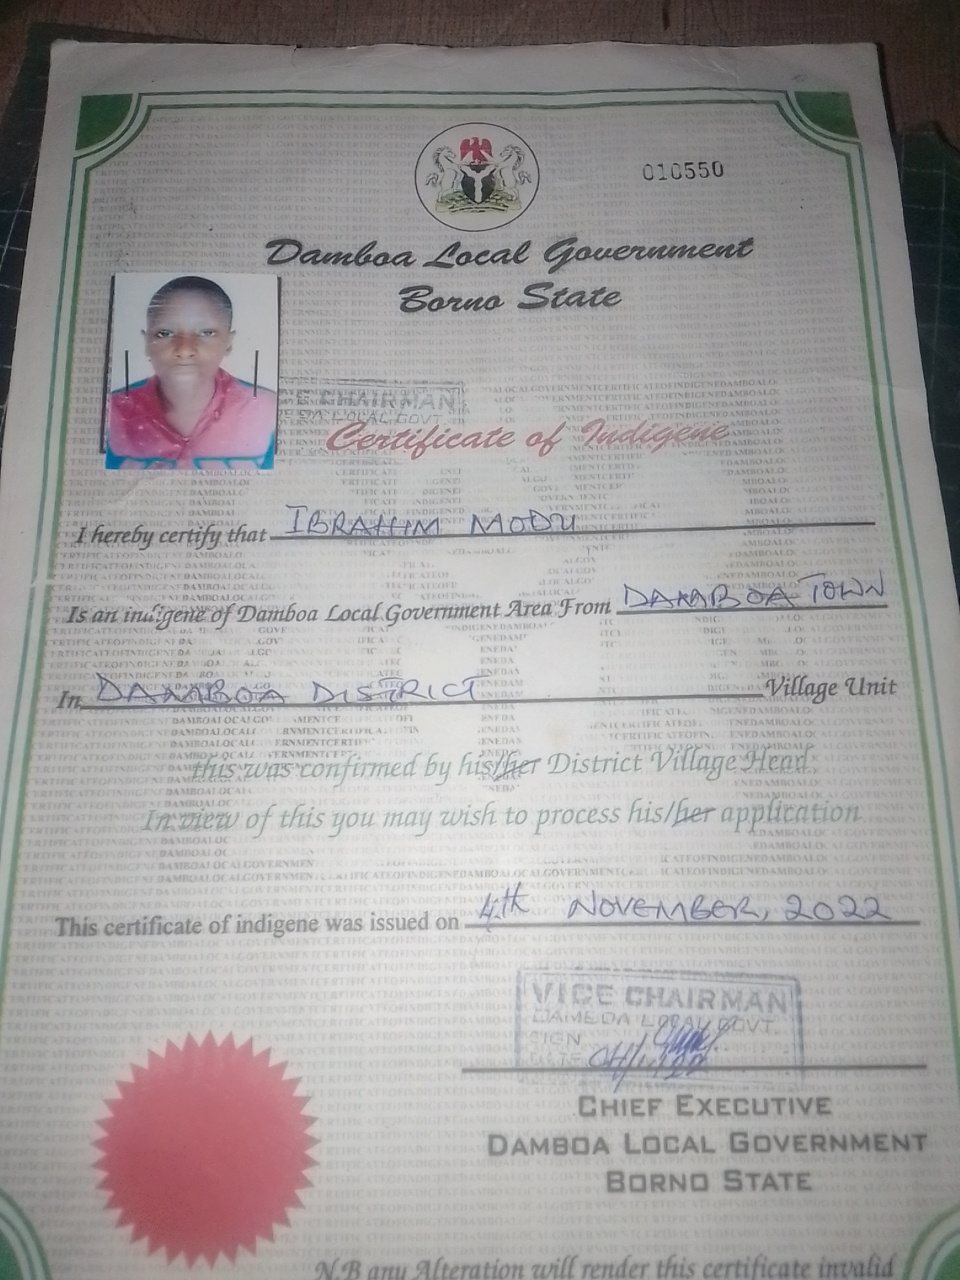 010550
Damboa Local Government
Borno State
CHAIRMAN
LOCAL GOVT
Certificate of Indigene
I hereby certify that IBRAHIM MODU
Is an indigene of Damboa Local Government Area From DAMBOA TOWN
In DAMBOA DISTRICT Village Unit
this was confirmed by his/her District Village Head
In view of this you may wish to process his/her application
This certificate of indigene was issued on 4th NOVEMBER, 2022
VICE CHAIRMAN
DAMBOA LOCAL GOVT.
SIGN
DATE
CHIEF EXECUTIVE
DAMBOA LOCAL GOVERNMENT
BORNO STATE
N.B any Alteration will render this certificate invalid